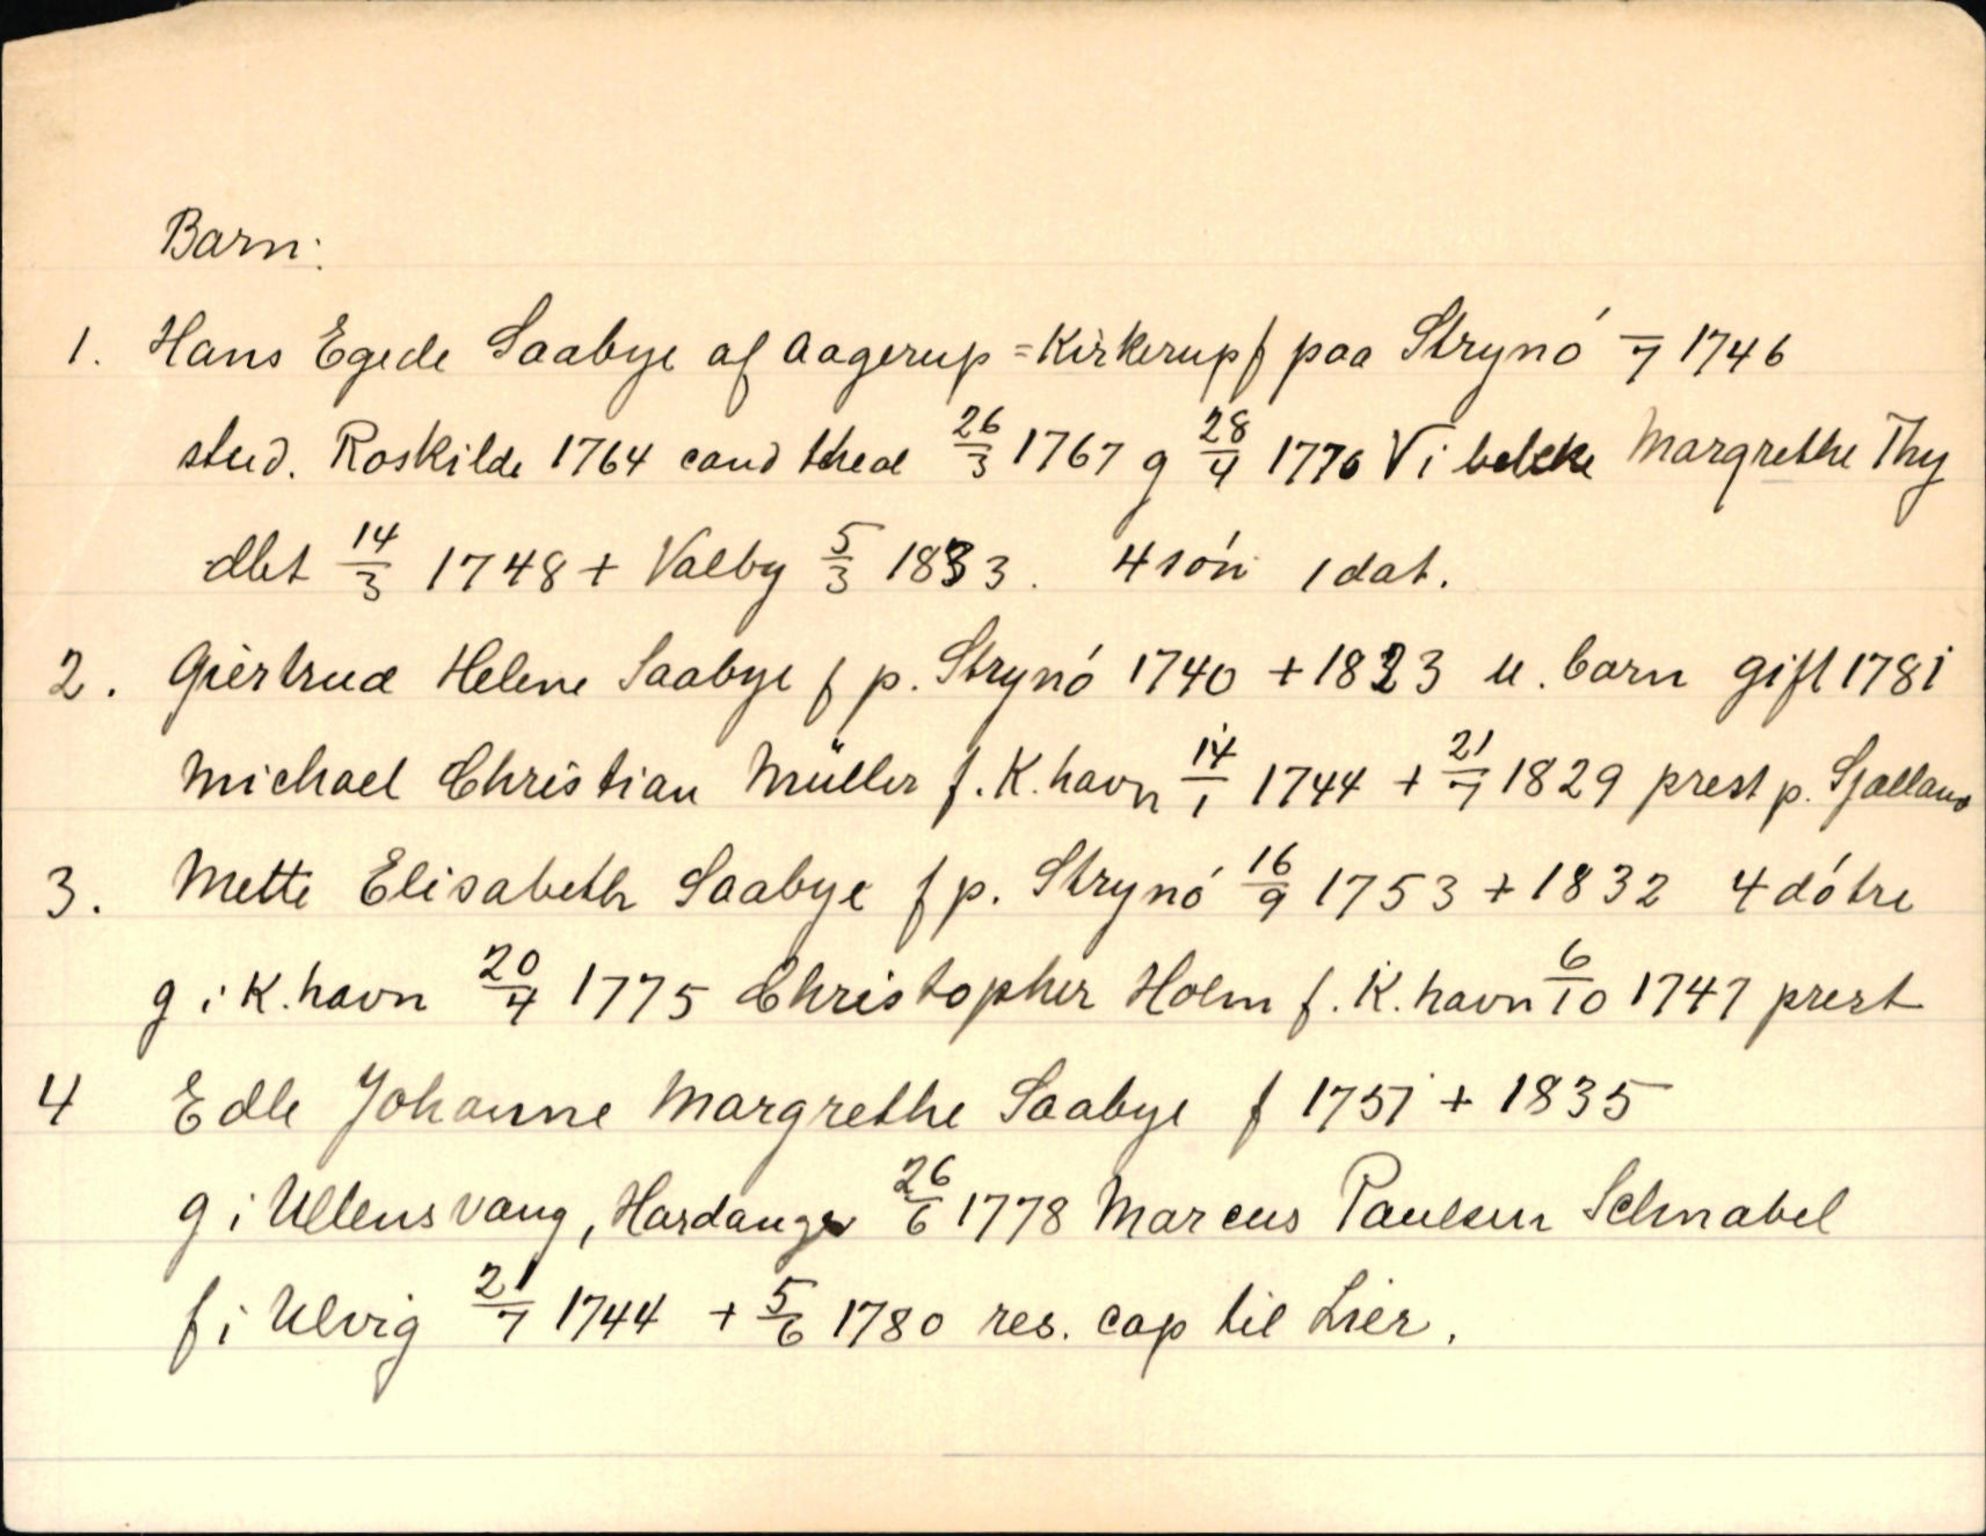 Barn:
1. Hans Egede Saabye af Aagerup=Kirkerup f paa Strynó /7 1746
stud. Roskilde 1764 cand theol 26/3 1767 g 28/4 1770 Vibekke Margrethe Thy
dbt 14/3 1748 + Valby 5/3 1833. 4 són 1 dat.
2. Giertrud Helene Saabye f p. Strynó 1740 + 1823 u. barn gift 1781
Michael Christian Müller f. K.havn 14/1 1744 + 21/7 1829 prest p. Sjælland
3. Mette Elisabeth Saabye f p. Strynó 16/9 1753 + 1832 4 dótre
g i K.havn 20/4 1775 Christopher Holm f. K.havn 6/10 1747 prest
4 Edle Johanne Margrethe Saabye f 1751 + 1835
g i Ullensvang, Hardanger 26/6 1778 Marcus Paulsen Schnabel
f i Ulvig 21/7 1744 + 5/6 1780 res. cap til Lier.